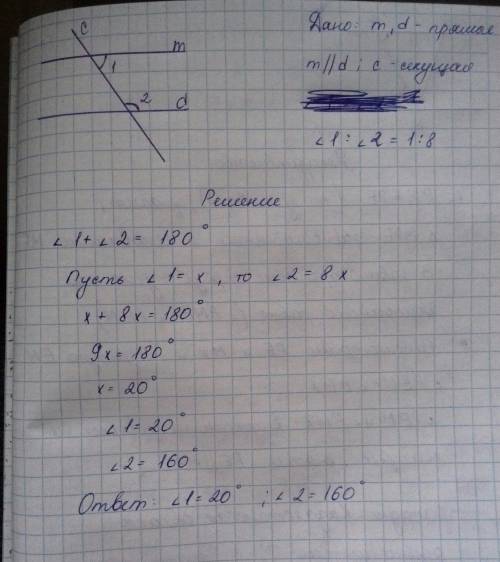 c
m
1
2
d
Дано: m, d - прямые
m//d ; c - секущая
∠1 : ∠2 = 1:8
Решение
∠1 + ∠2 = 180°
Пусть ∠1 = x , то ∠2 = 8x
x + 8x = 180°
9x = 180°
x = 20°
∠1 = 20°
∠2 = 160°
Ответ: ∠1 = 20° ; ∠2 = 160°